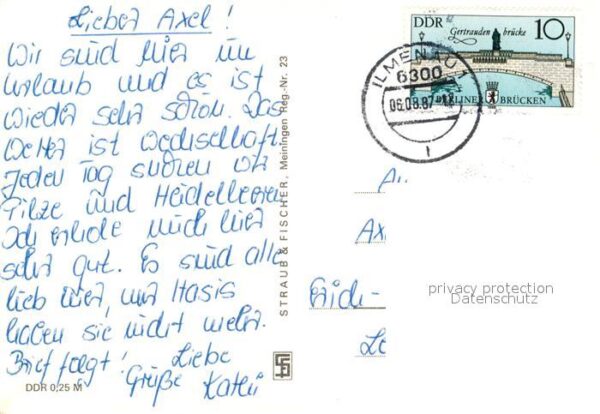 Lieber Axel!
Wir sind hier im
Urlaub und es ist
wieder sehr schön. Das
Wetter ist wechselhaft.
Jeden Tag suchen wir
Pilze und Heidelbeeren.
Ich erhole mich hier
sehr gut. Es sind alle
lieb hier, nur Hasis
haben sie nicht mehr.
Brief folgt! Liebe
Grüße Kathi
DDR 0,25 M
STRAUB & FISCHER, Meiningen Reg.-Nr. 23
DDR 10
Gertraudenbrücke
BERLINER BRÜCKEN
ILMENAU 1
6300
06.08.87
A
Ax
Erich-
Le
privacy protection
Datenschutz